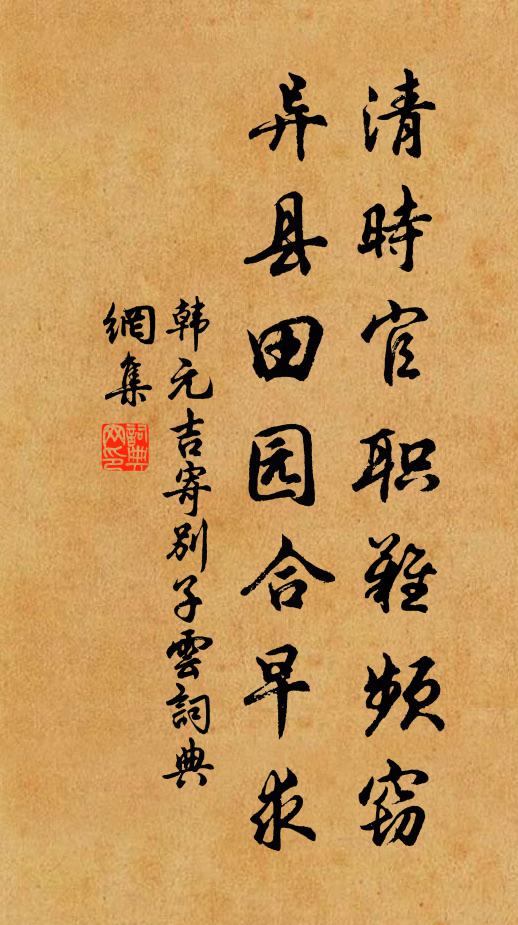 清時官职難頻窃
异县田园合早求
韩元吉寄别子雲詞典
網集
詞典
网印